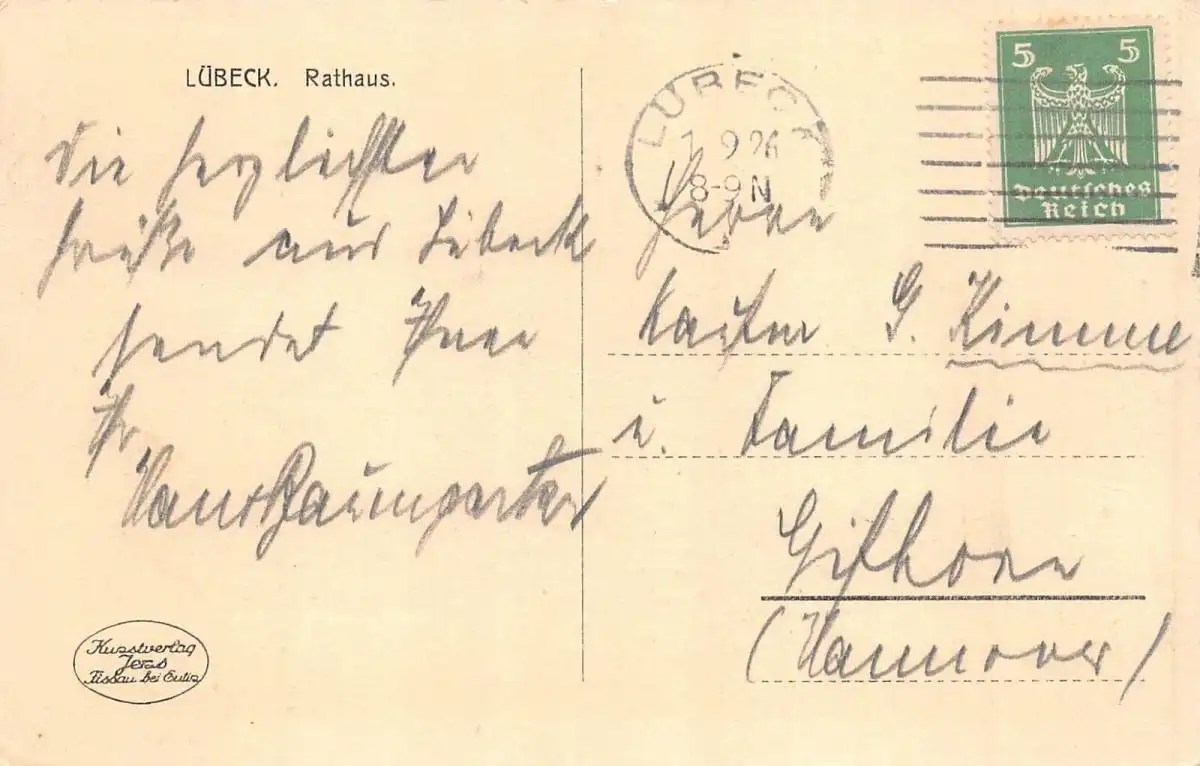 LÜBECK. Rathaus.
Die herzlichsten
Grüße aus Lübeck
sendet Ihnen
Ihr
Hans Baumgarten
Kunstverlag
Jeras
Fissau bei Eutin
LÜBECK
9.26
8-9 N
5 5
Deutsches
Reich
Herrn
G. Kimme
u. Familie
Gifhorn
(Hannover)